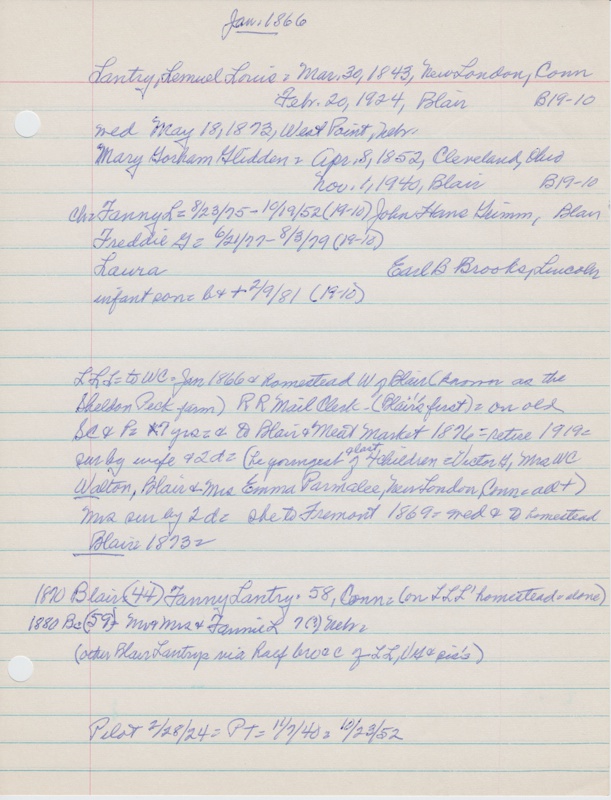 Jan. 1866
Lantry, Lemuel Louis = Mar. 30, 1843, New London, Conn
Febr. 20, 1924, Blair B19-10
wed May 18, 1873, West Point, Nebr.
Mary Gorham Glidden = Apr. 8, 1852, Cleveland, Ohio
Nov. 1, 1940, Blair B19-10
ch = Fanny L = 8/23/75 - 10/19/52 (19-10) John Hans Grimm, Blair
Freddie G = 6/21/77 - 8/3/79 (19-10)
Laura Earl B Brooks, Lincoln
infant son = b & + 2/9/81 (19-10)
LLL = to WC = Jan 1866 & homestead W of Blair (known as the
Sheldon Peck farm) RR Mail Clerk - (Blair's first) = on old
SC & P = 7 yrs = & to Blair & Meat Market 1876 = retire 1919 =
sur by wife & 2d = (he youngest of 4 children = Victor G, Mrs WC
Walton, Blair & Mrs Emma Parmalee, New London, Conn = all +)
Mrs sur by 2d = she to Fremont 1869 = wed & to homestead
Blair 1873 =
1870 Blair (44) Fanny Lantry = 58, Conn = (on LLL' homestead = alone)
1880 B = (59) Mr & Mrs & Fannie L 7 (?) Nebr =
(other Blair Lantrys via half bro & c of LL, VG & sis's)
Pilot 2/28/24 = PT = 11/7/40 = 10/23/52